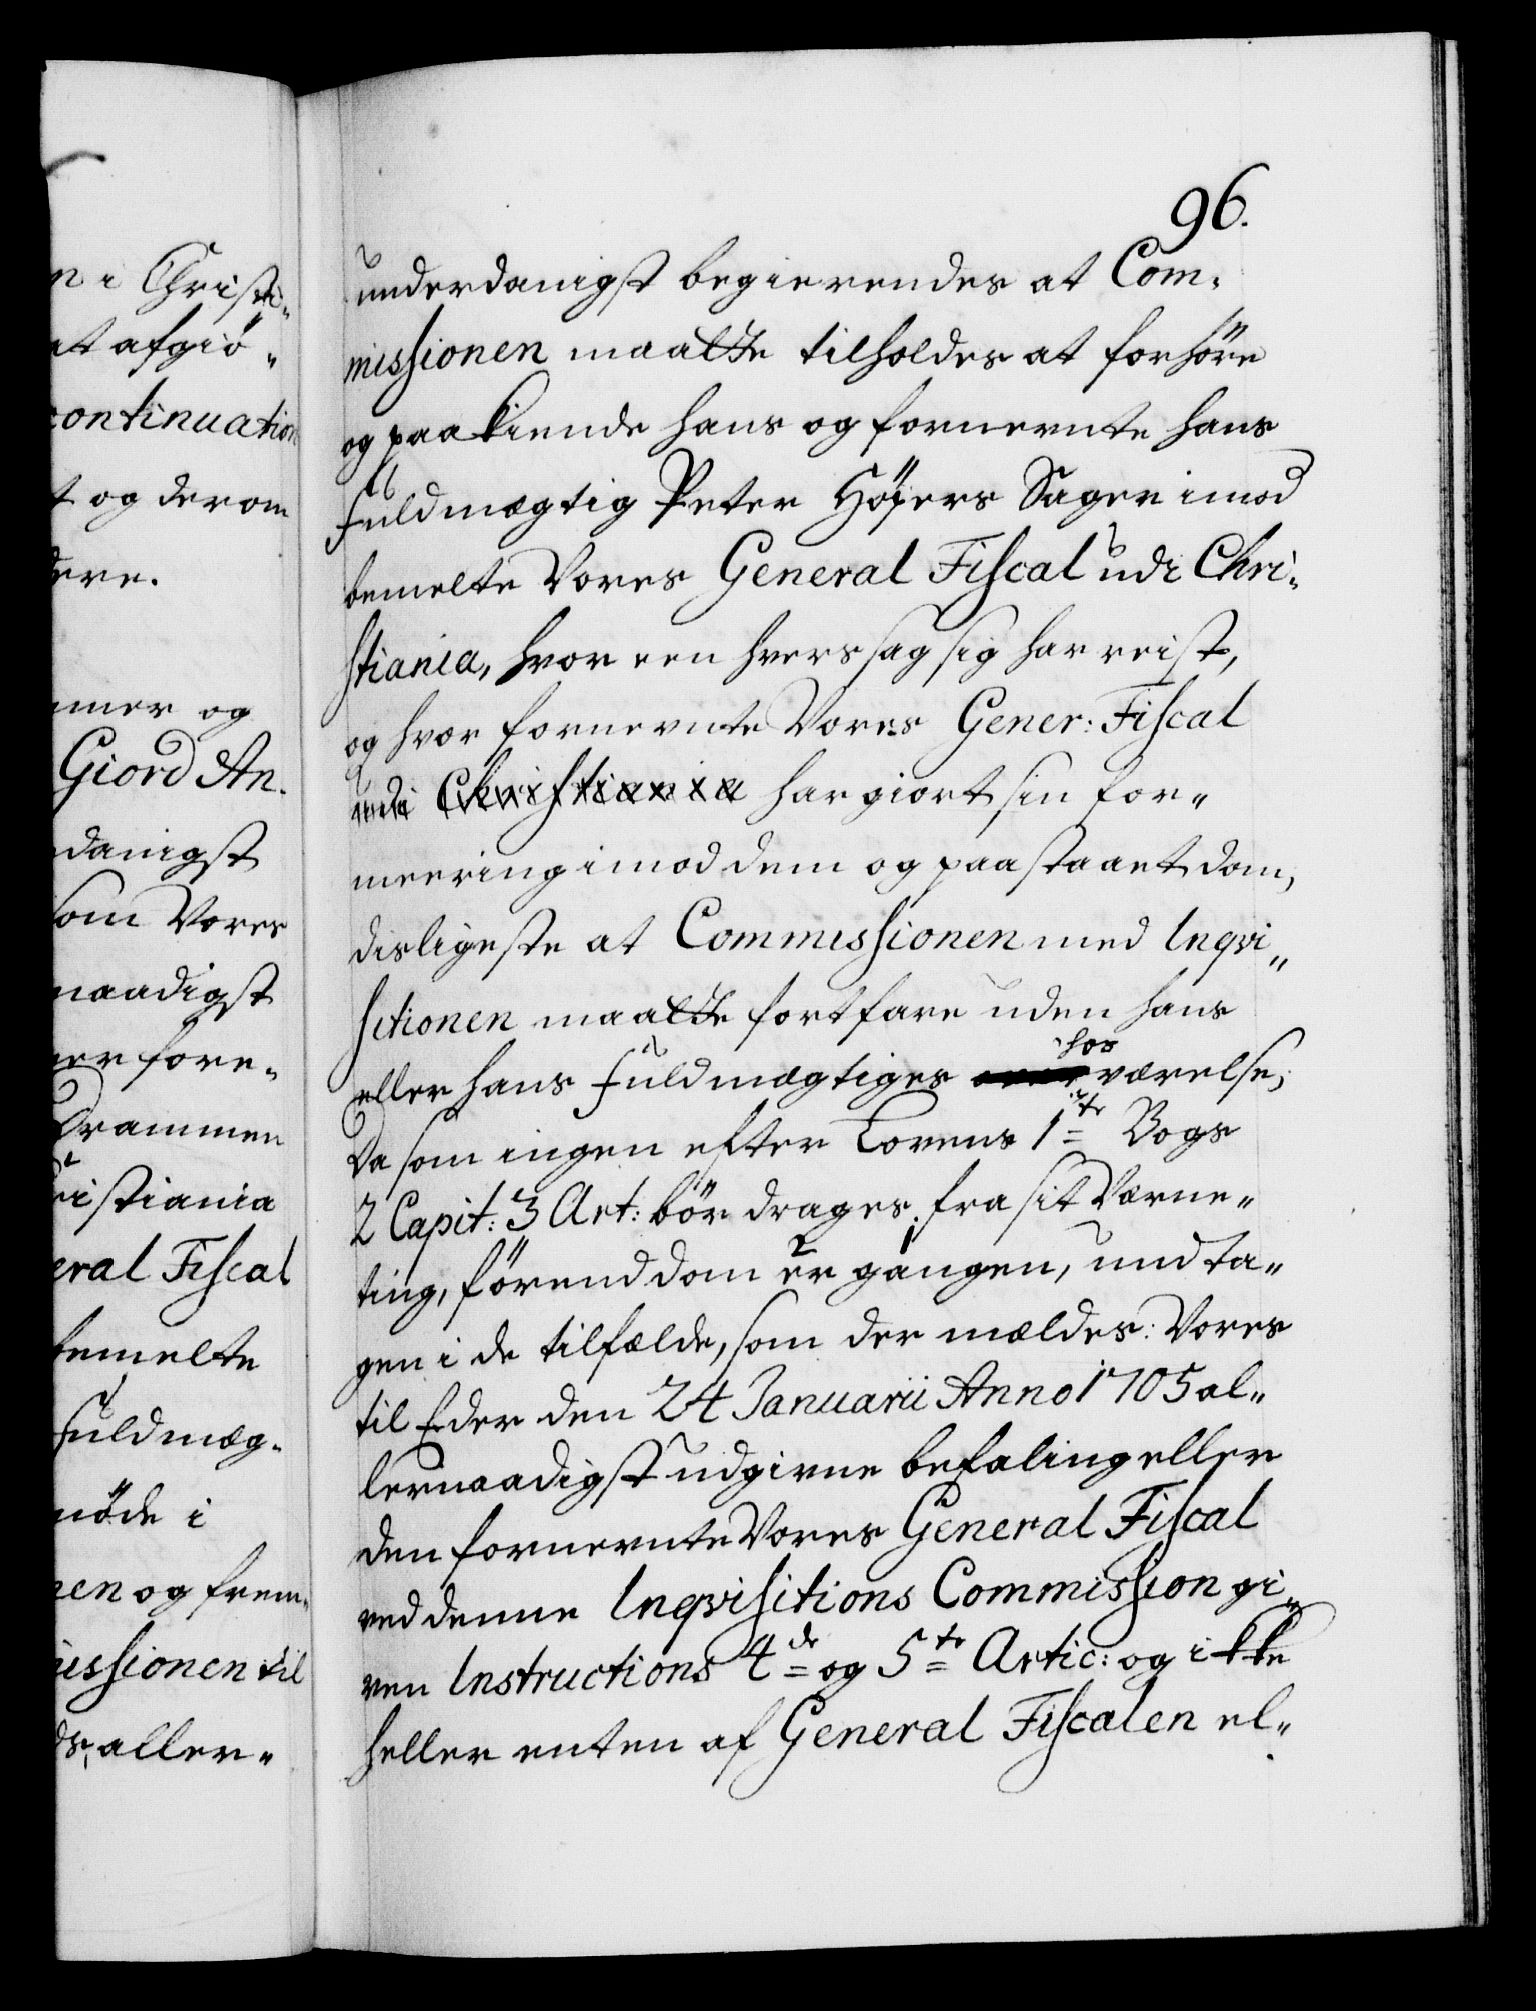 n i Christi-
at afgiö-
continuation
t og derom
dere.
mmer og
Giord An-
danigst
som Vores
naadigst
ner fore-
Drammen
ristiania
eral Fiscal
bemelte
Fuldmæg-
möde i
nen og frem-
issionen til
ds, aller-
96.
underdanigst begierendes at Com-
missionen maatte tilholdes at forhöre
og paakiende hans og fornevnte hans
Fuldmægtig Peter Höjers Sager imod
bemelte Vores General Fiscal udi Chri-
stiania, hvor een hvers sag sig har reist,
og hvor fornevnte Vores Gener: Fiscal
udi Christiania har giort sin for-
meening imod dem og paastaaet dom,
disligeste at Commissionen med Inqvi-
sitionen maatte fortfare uden hans
eller hans Fuldmægtiges hos værelse;
Da som ingen efter Lovens 1ste Bogs
2 Capit: 3 Art: bör drages fra sit Værne-
ting, förend dom er gangen, undta-
gen i de tilfælde, som der mældes: Vores
til Eder den 24 Januarii Anno 1705 al-
lernaadigst udgivne befaling eller
den fornevnte Vores General Fiscal
ved denne Inqvisitions Commission gi-
ven Instructions 4de og 5te Artic: og ikke
heller enten af General Fiscalen el-